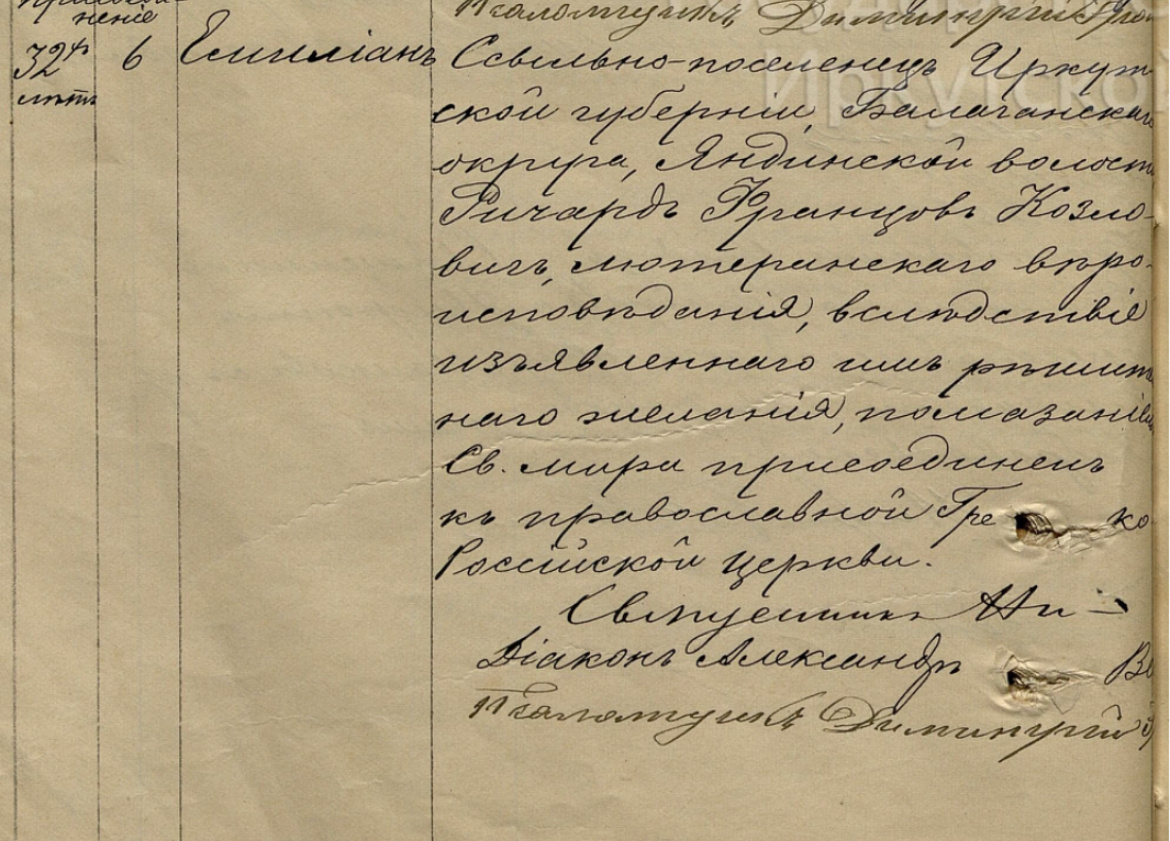 нение
Псаломщикъ Димитрій
32х 6 Емиліанъ Ссыльно-поселенецъ Иркут-
лѣтъ ской губерніи, Балаганскаго
округа, Яндинской волости
Ричардъ Францовъ Козло-
вичъ, лютеранскаго вѣро-
исповѣданія, вслѣдствіе
изъявленнаго имъ рѣшит
наго желанія, помазаніемъ
Св. мира присоединенъ
къ православной Гре ко
Россійской церкви.
Священникъ
Діаконъ Александръ
Псаломщикъ Димитрій